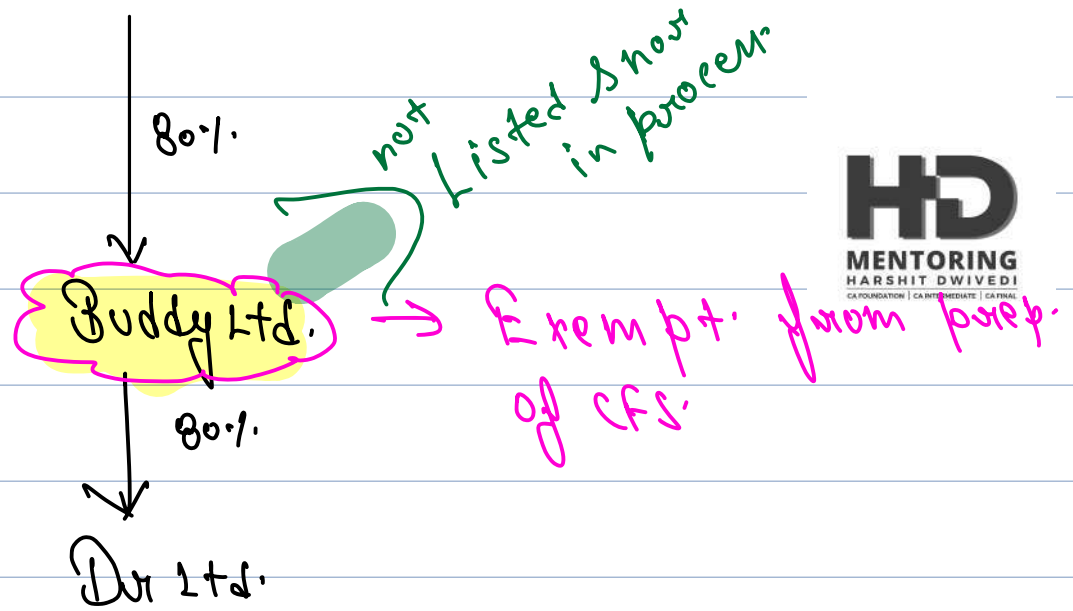 80%.
not
Listed & nor
in process.
HD
MENTORING
HARSHIT DWIVEDI
CA FOUNDATION | CA INTERMEDIATE | CA FINAL
Buddy Ltd.
Exempt. from prep.
of CFS.
80%.
Ltd.